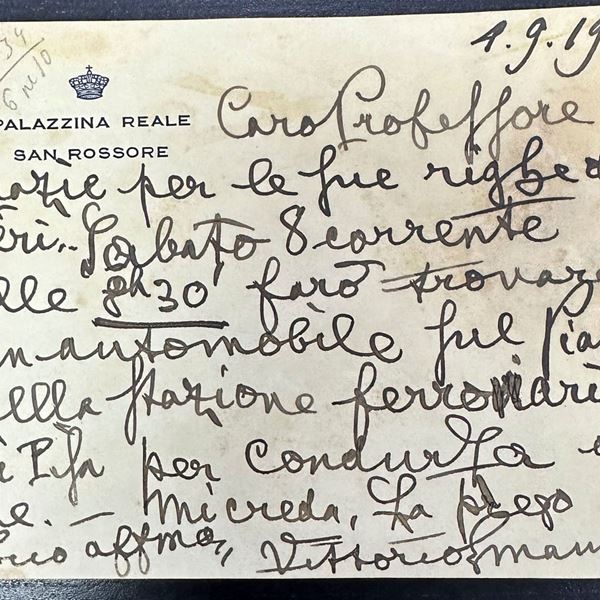 4.9.19
PALAZZINA REALE
SAN ROSSORE
Caro Professore
azie per le sue righe d
eri. Sabato 8 corrente
lle 9h 30' farò trovare
n automobile sul Pia
ella stazione ferroviari
i Pisa per condurLa
e. — Mi creda, La prego
Suo affmo, Vittorio Eman